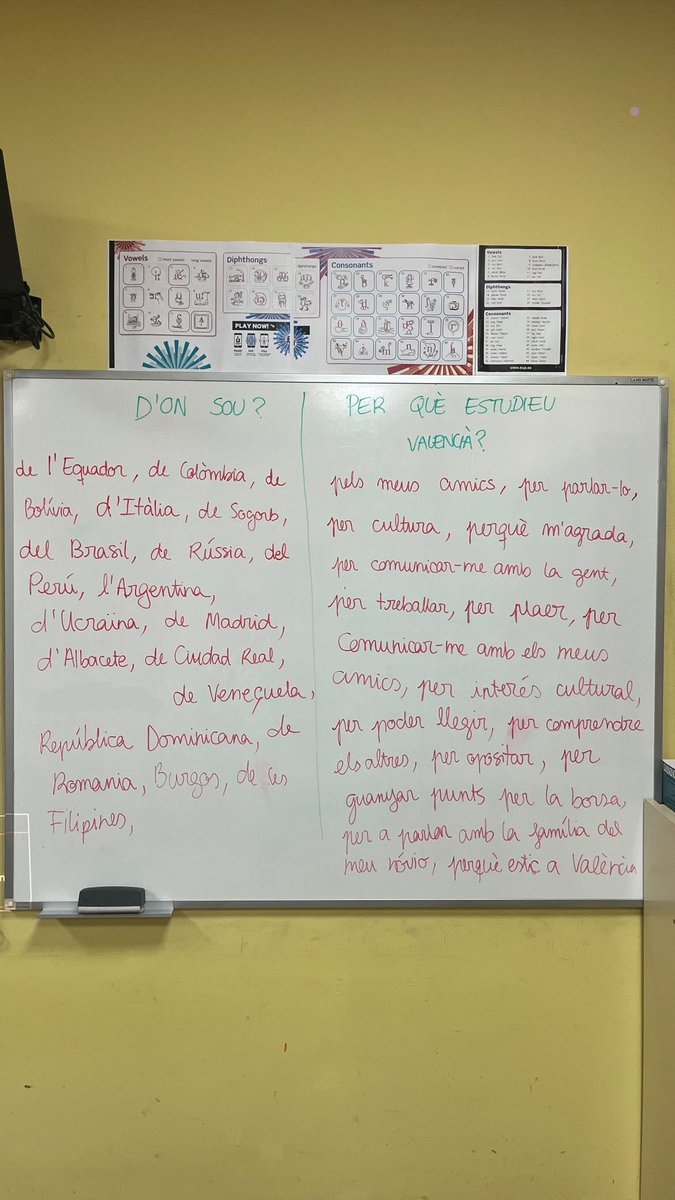 Vowels
short vowels
long vowels
Diphthongs
diphthongs
PLAY NOW!
Consonants
unvoiced
voiced
Vowels
Diphthongs
Consonants
D'ON SOU?
de l'Equador, de Colòmbia, de
Bolívia, d'Itàlia, de Sogorb,
del Brasil, de Rússia, del
Perú, l'Argentina,
d'Ucraïna, de Madrid,
d'Albacete, de Ciudad Real,
de Veneçuela,
República Dominicana, de
Romania, Burgos, de les
Filipines,
PER QUÈ ESTUDIEU
VALENCIÀ?
pels meus amics, per parlar-lo,
per cultura, perquè m'agrada,
per comunicar-me amb la gent,
per treballar, per plaer, per
comunicar-me amb els meus
amics, per interés cultural,
per poder llegir, per comprendre
els altres, per opositar, per
guanyar punts per la borsa,
per a parlar amb la família del
meu nóvio, perquè estic a València